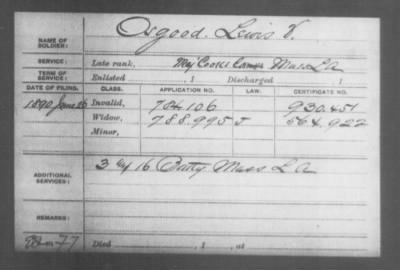 NAME OF SOLDIER: Osgood, Lewis V.
SERVICE: Late rank, Mass L A
TERM OF SERVICE: Enlisted , 1 Discharged 1
DATE OF FILING. CLASS. APPLICATION NO. LAW. CERTIFICATE NO.
1890 June 26 Invalid, 784106 930.451
Widow, 788.995 564.922
Minor,
ADDITIONAL SERVICES: 3 & 16 Batty Mass L A
REMARKS:
Died , 1 , at